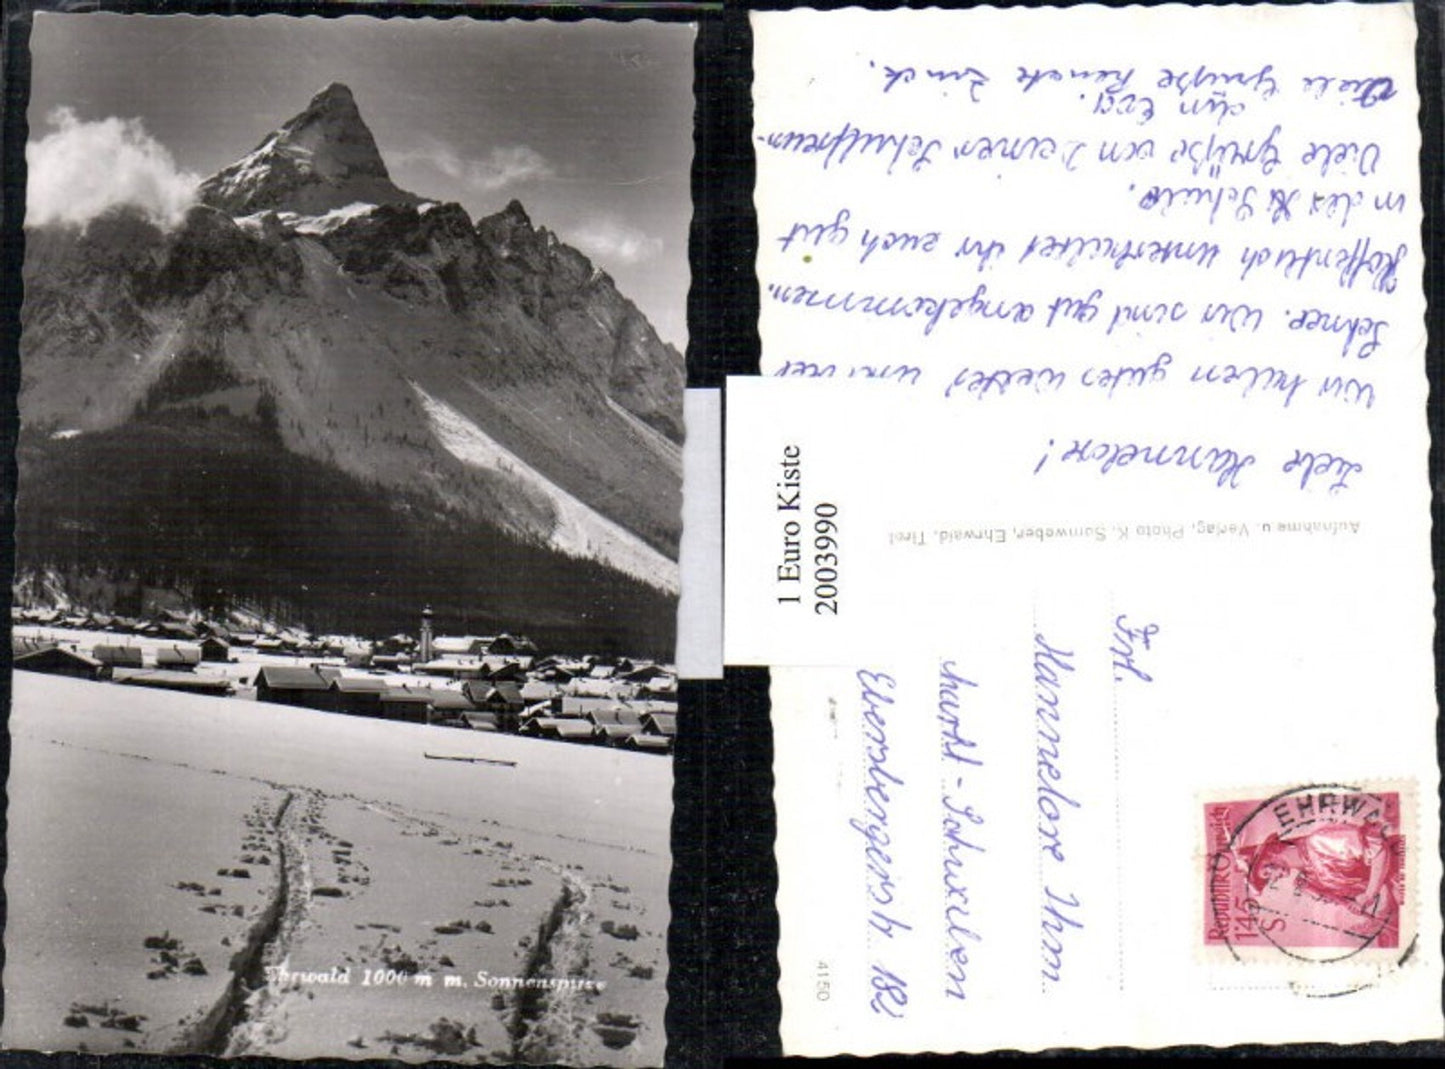 Ehrwald 1000 m m. Sonnenspitze
1 Euro Kiste
2003990
Liebe Hannelore!
Wir haben gutes Wetter und viel
Schnee. Wir sind gut angekommen.
Hoffentlich unterhaltet ihr euch gut
in der Schule.
Viele Grüße von Deiner Schulfreun-
din Evi.
Viele Grüße Renate
Aufnahme u. Verlag, Photo K. Somweber, Ehrwald, Tirol
Frl.
Hannelore
Ebersbergerstr. 182
4150
Republik Österreich
1.45
S
EHRWALD
TIROL